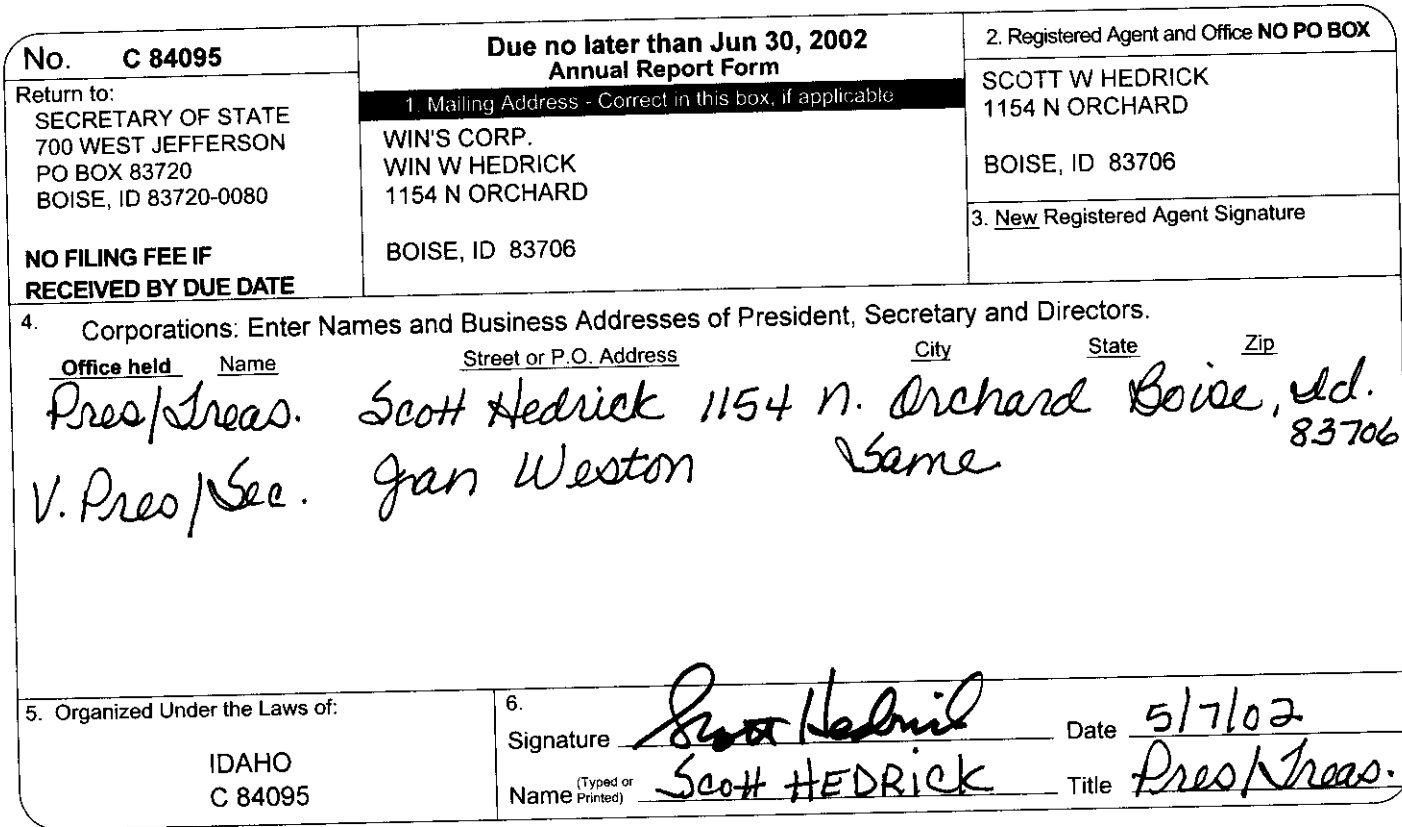 No. C 84095
Return to:
SECRETARY OF STATE
700 WEST JEFFERSON
PO BOX 83720
BOISE, ID 83720-0080
NO FILING FEE IF
RECEIVED BY DUE DATE
Due no later than Jun 30, 2002
Annual Report Form
1. Mailing Address - Correct in this box, if applicable
WIN'S CORP.
WIN W HEDRICK
1154 N ORCHARD
BOISE, ID 83706
2. Registered Agent and Office NO PO BOX
SCOTT W HEDRICK
1154 N ORCHARD
BOISE, ID 83706
3. New Registered Agent Signature
4. Corporations: Enter Names and Business Addresses of President, Secretary and Directors.
Office held Name Street or P.O. Address City State Zip
Pres/Treas. Scott Hedrick 1154 N. Orchard Boise, Id.
83706
V. Pres/Sec. Jan Weston Same
5. Organized Under the Laws of:
IDAHO
C 84095
6.
Signature Scott Hedrick Date 5/7/02
Name (Typed or Printed) Scott HEDRICK Title Pres/Treas.